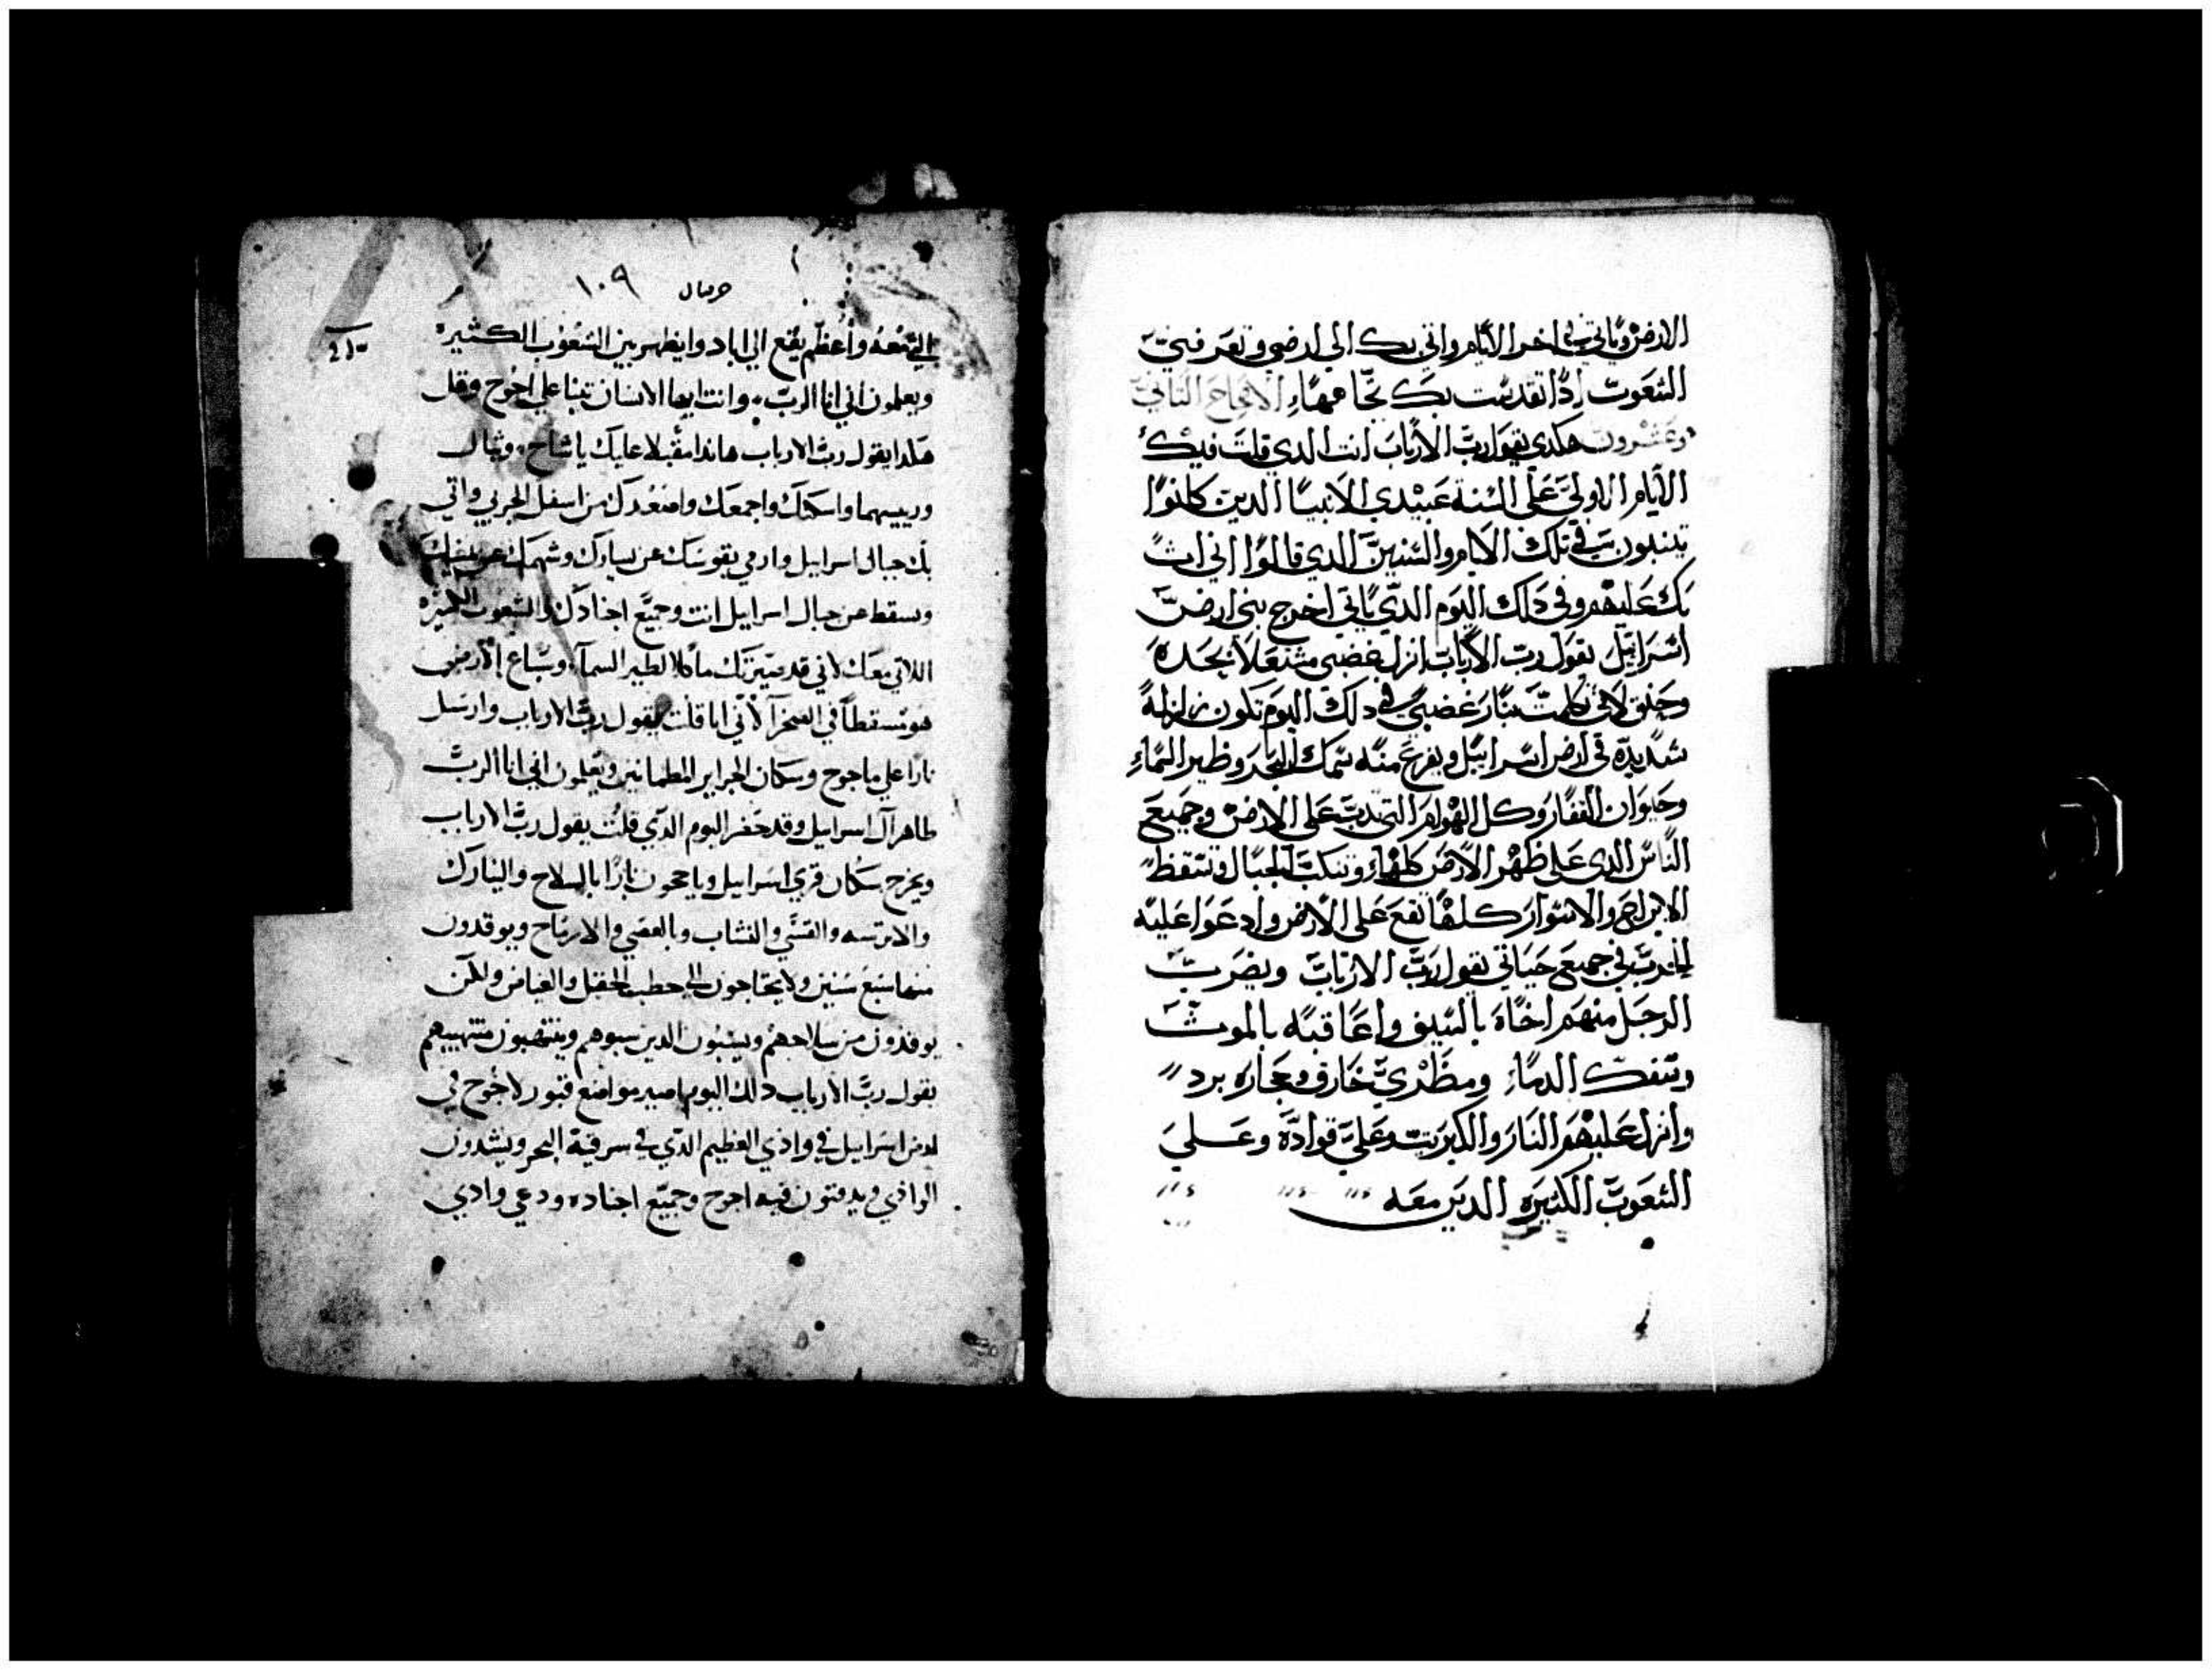 الارض وياتي في اخر الايام واتي بك الي ارضي وتعرفني
الشعوب اذا تقدست بك تجاههم الاصحاح الثاني
وعشرون هكدي يقول رب الارباب انت الدي قلت فيك
الايام الاولي علي السنة عبيدي الانبيا الدين كانوا
يتنبون في تلك الايام والسنين الدي قالوا اني اث
بك عليهم وفي دلك اليوم الدي ياتي اخرج بني ارض
اسراييل يقول رب الارباب انزل غضبي مشتعلا بحده
وحنق لاني تكلمت بنار غضبي في دلك اليوم تكون زلزلة
شديدة في ارض اسراييل ويفزع منه سمك البحر وطير السماء
وحيوان القفار وكل الهوام التي تدب علي الارض وجميع
الناس الدي علي ظهر الارض كلها وتنكب الجبال وتسقط
الابراج والاسوار كلها تقع علي الارض وادعوا عليه
الحرب في جميع جبالي يقول رب الارباب ويضرب
الرجل منهم اخاه بالسيف واعاقبه بالموت
وتسفك الدماء ومطري خارف وحجاره برد
وانزل عليهم النار والكبريت وعلي قواده وعلي
الشعوب الكثيره الدين معه
١٠٩
واعظم يقع الي اباد وايظهر بين الشعوب الكثيره
ويعلمون اني انا الرب وانت ايها الانسان تنبا علي اجوج وقل
هكدا يقول رب الارباب هاندا مقبلا عليك يا
واجمعك واصعدك من اسفل الجربي واتي
بك جبال اسراييل وارمي بقوسك عن يسارك وسهمك عن يمينك
وتسقط عن جبال اسراييل انت وجميع اجنادك والشعوب الكثيره
اللاتي معك لاني قد صيرتك ماكلا لطير السما وسباع الارض
في الصحرا لاني انا قلت يقول رب الارباب وارسل
نارا علي ماجوج وسكان الجزاير المطمانين ويعلمون اني انا الرب
طاهر ال اسراييل وقد حضر اليوم الدي قلت يقول رب الارباب
ويخرج سكان قري اسراييل نارا بالسلاح والنيازك
والاترسه والقسي والنشاب وبالعصي والارماح ويوقدون
منها سبع سنين ولا يحتاجون الي حطب الحقل والغياض ولكن
يوقدون من سلاحهم ويسبون الدين سبوهم وينتهبون منتهبيهم
يقول رب الارباب دلك اليوم اصير مواضع قبور لاجوج في
ارض اسراييل في وادي العظيم الدي في شرقية البحر ويشدون
الوادي ويدفنون فيه اجوج وجميع اجناده ودعي وادي